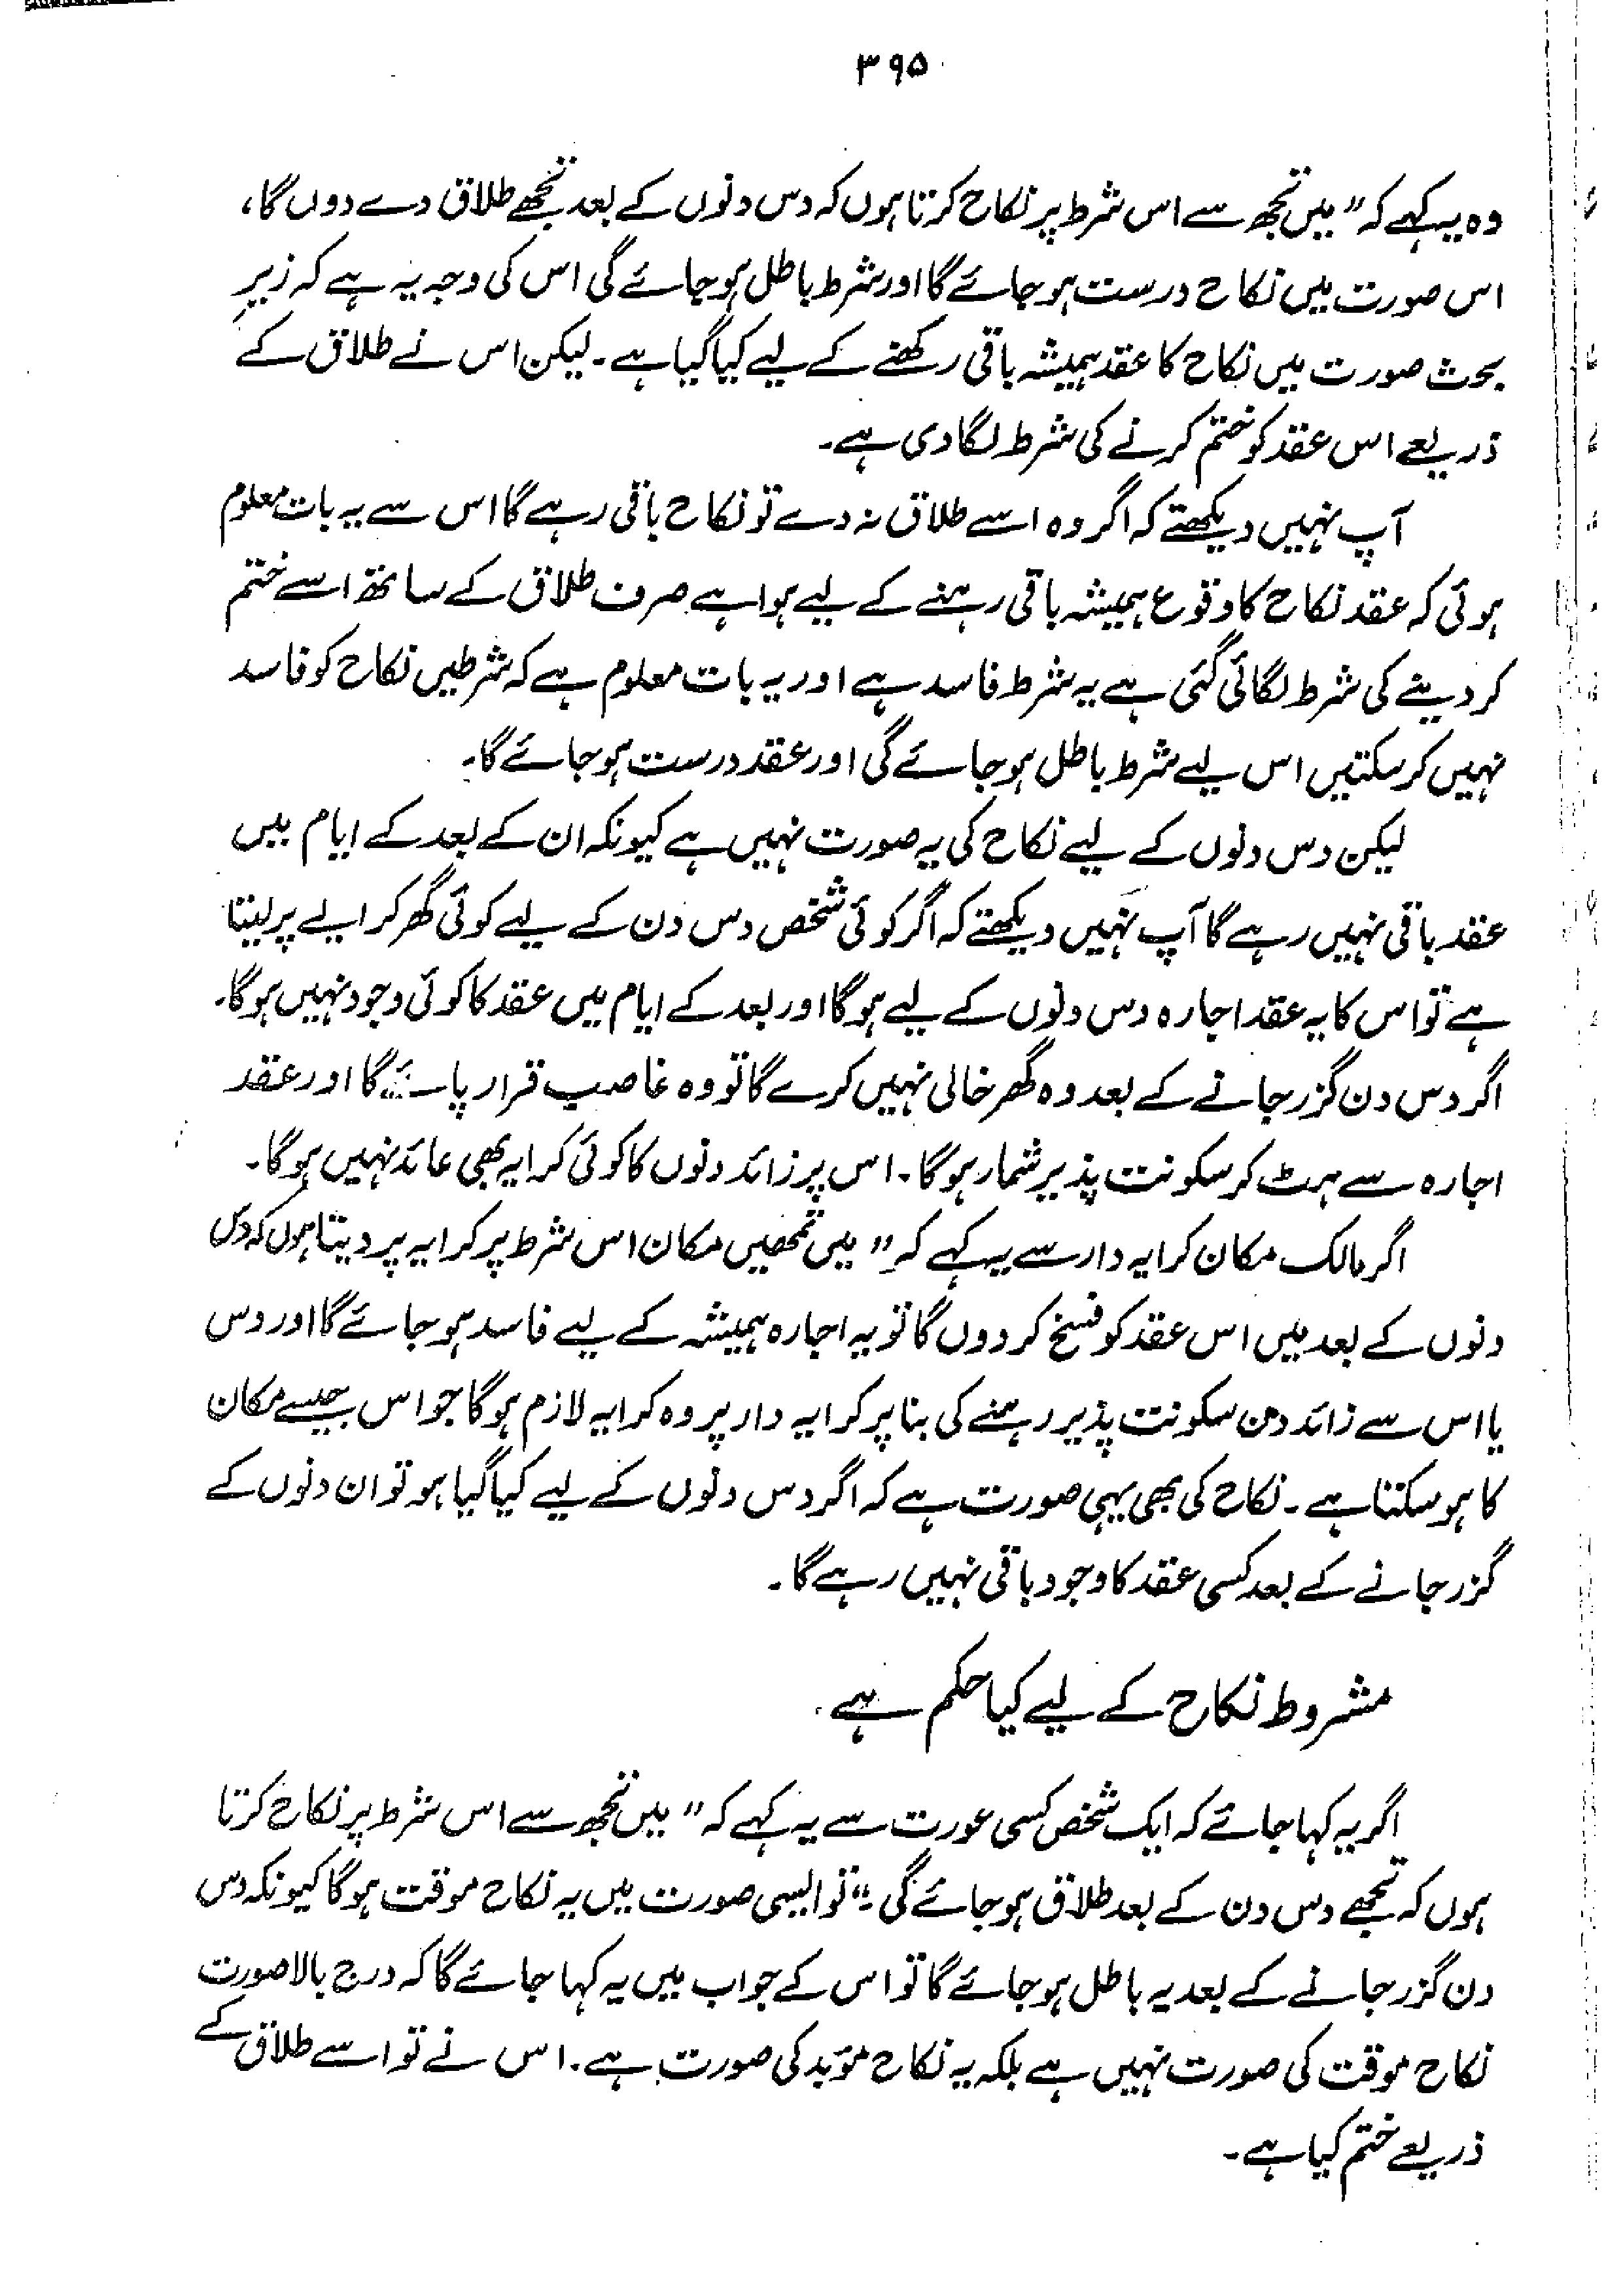 ۳۹۵
وہ یہ کہے کہ " میں تجھ سے اس شرط پر نکاح کرتا ہوں کہ دس دنوں کے بعد تجھے طلاق دے دوں گا،
اس صورت میں نکاح درست ہو جائے گا اور شرط باطل ہو جائے گی اس کی وجہ یہ ہے کہ زیرِ
بحث صورت میں نکاح کا عقد ہمیشہ باقی رکھنے کے لیے کیا گیا ہے۔ لیکن اس نے طلاق کے
ذریعے اس عقد کو ختم کرنے کی شرط لگا دی ہے۔
آپ نہیں دیکھتے کہ اگر وہ اسے طلاق نہ دے تو نکاح باقی رہے گا اس سے یہ بات معلوم
ہوئی کہ عقد نکاح کا وقوع ہمیشہ باقی رہنے کے لیے ہوا ہے صرف طلاق کے ساتھ اسے ختم
کر دینے کی شرط لگائی گئی ہے یہ شرط فاسد ہے اور یہ بات معلوم ہے کہ شرطیں نکاح کو فاسد
نہیں کر سکتیں اس لیے شرط باطل ہو جائے گی اور عقد درست ہو جائے گا۔
لیکن دس دنوں کے لیے نکاح کی یہ صورت نہیں ہے کیونکہ ان کے بعد کے ایام میں
عقد باقی نہیں رہے گا آپ نہیں دیکھتے کہ اگر کوئی شخص دس دن کے لیے کوئی گھر کرایے پر لیتا
ہے تو اس کا یہ عقد اجارہ دس دنوں کے لیے ہو گا اور بعد کے ایام میں عقد کا کوئی وجود نہیں ہو گا۔
اگر دس دن گزر جانے کے بعد وہ گھر خالی نہیں کرے گا تو وہ غاصب قرار پائے گا اور عقد
اجارہ سے ہٹ کر سکونت پذیر شمار ہو گا۔ اس پر زائد دنوں کا کوئی کرایہ بھی عائد نہیں ہو گا۔
اگر مالک مکان کرایہ دار سے یہ کہے کہ " میں تمھیں مکان اس شرط پر کرایہ پر دیتا ہوں کہ دس
دنوں کے بعد میں اس عقد کو فسخ کر دوں گا تو یہ اجارہ ہمیشہ کے لیے فاسد ہو جائے گا اور دس
یا اس سے زائد دن سکونت پذیر رہنے کی بنا پر کرایہ دار پر وہ کرایہ لازم ہو گا جو اس جیسے مکان
کا ہو سکتا ہے۔ نکاح کی بھی یہی صورت ہے کہ اگر دس دنوں کے لیے کیا گیا ہو تو ان دنوں کے
گزر جانے کے بعد کسی عقد کا وجود باقی نہیں رہے گا۔
مشروط نکاح کے لیے کیا حکم ہے
اگر یہ کہا جائے کہ ایک شخص کسی عورت سے یہ کہے کہ " میں تجھ سے اس شرط پر نکاح کرتا
ہوں کہ تجھے دس دن کے بعد طلاق ہو جائے گی۔" تو ایسی صورت میں یہ نکاح موقت ہو گا کیونکہ دس
دن گزر جانے کے بعد یہ باطل ہو جائے گا تو اس کے جواب میں یہ کہا جائے گا کہ درج بالا صورت
نکاح موقت کی صورت نہیں ہے بلکہ یہ نکاح مؤبد کی صورت ہے۔ اس نے تو اسے طلاق کے
ذریعے ختم کیا ہے۔